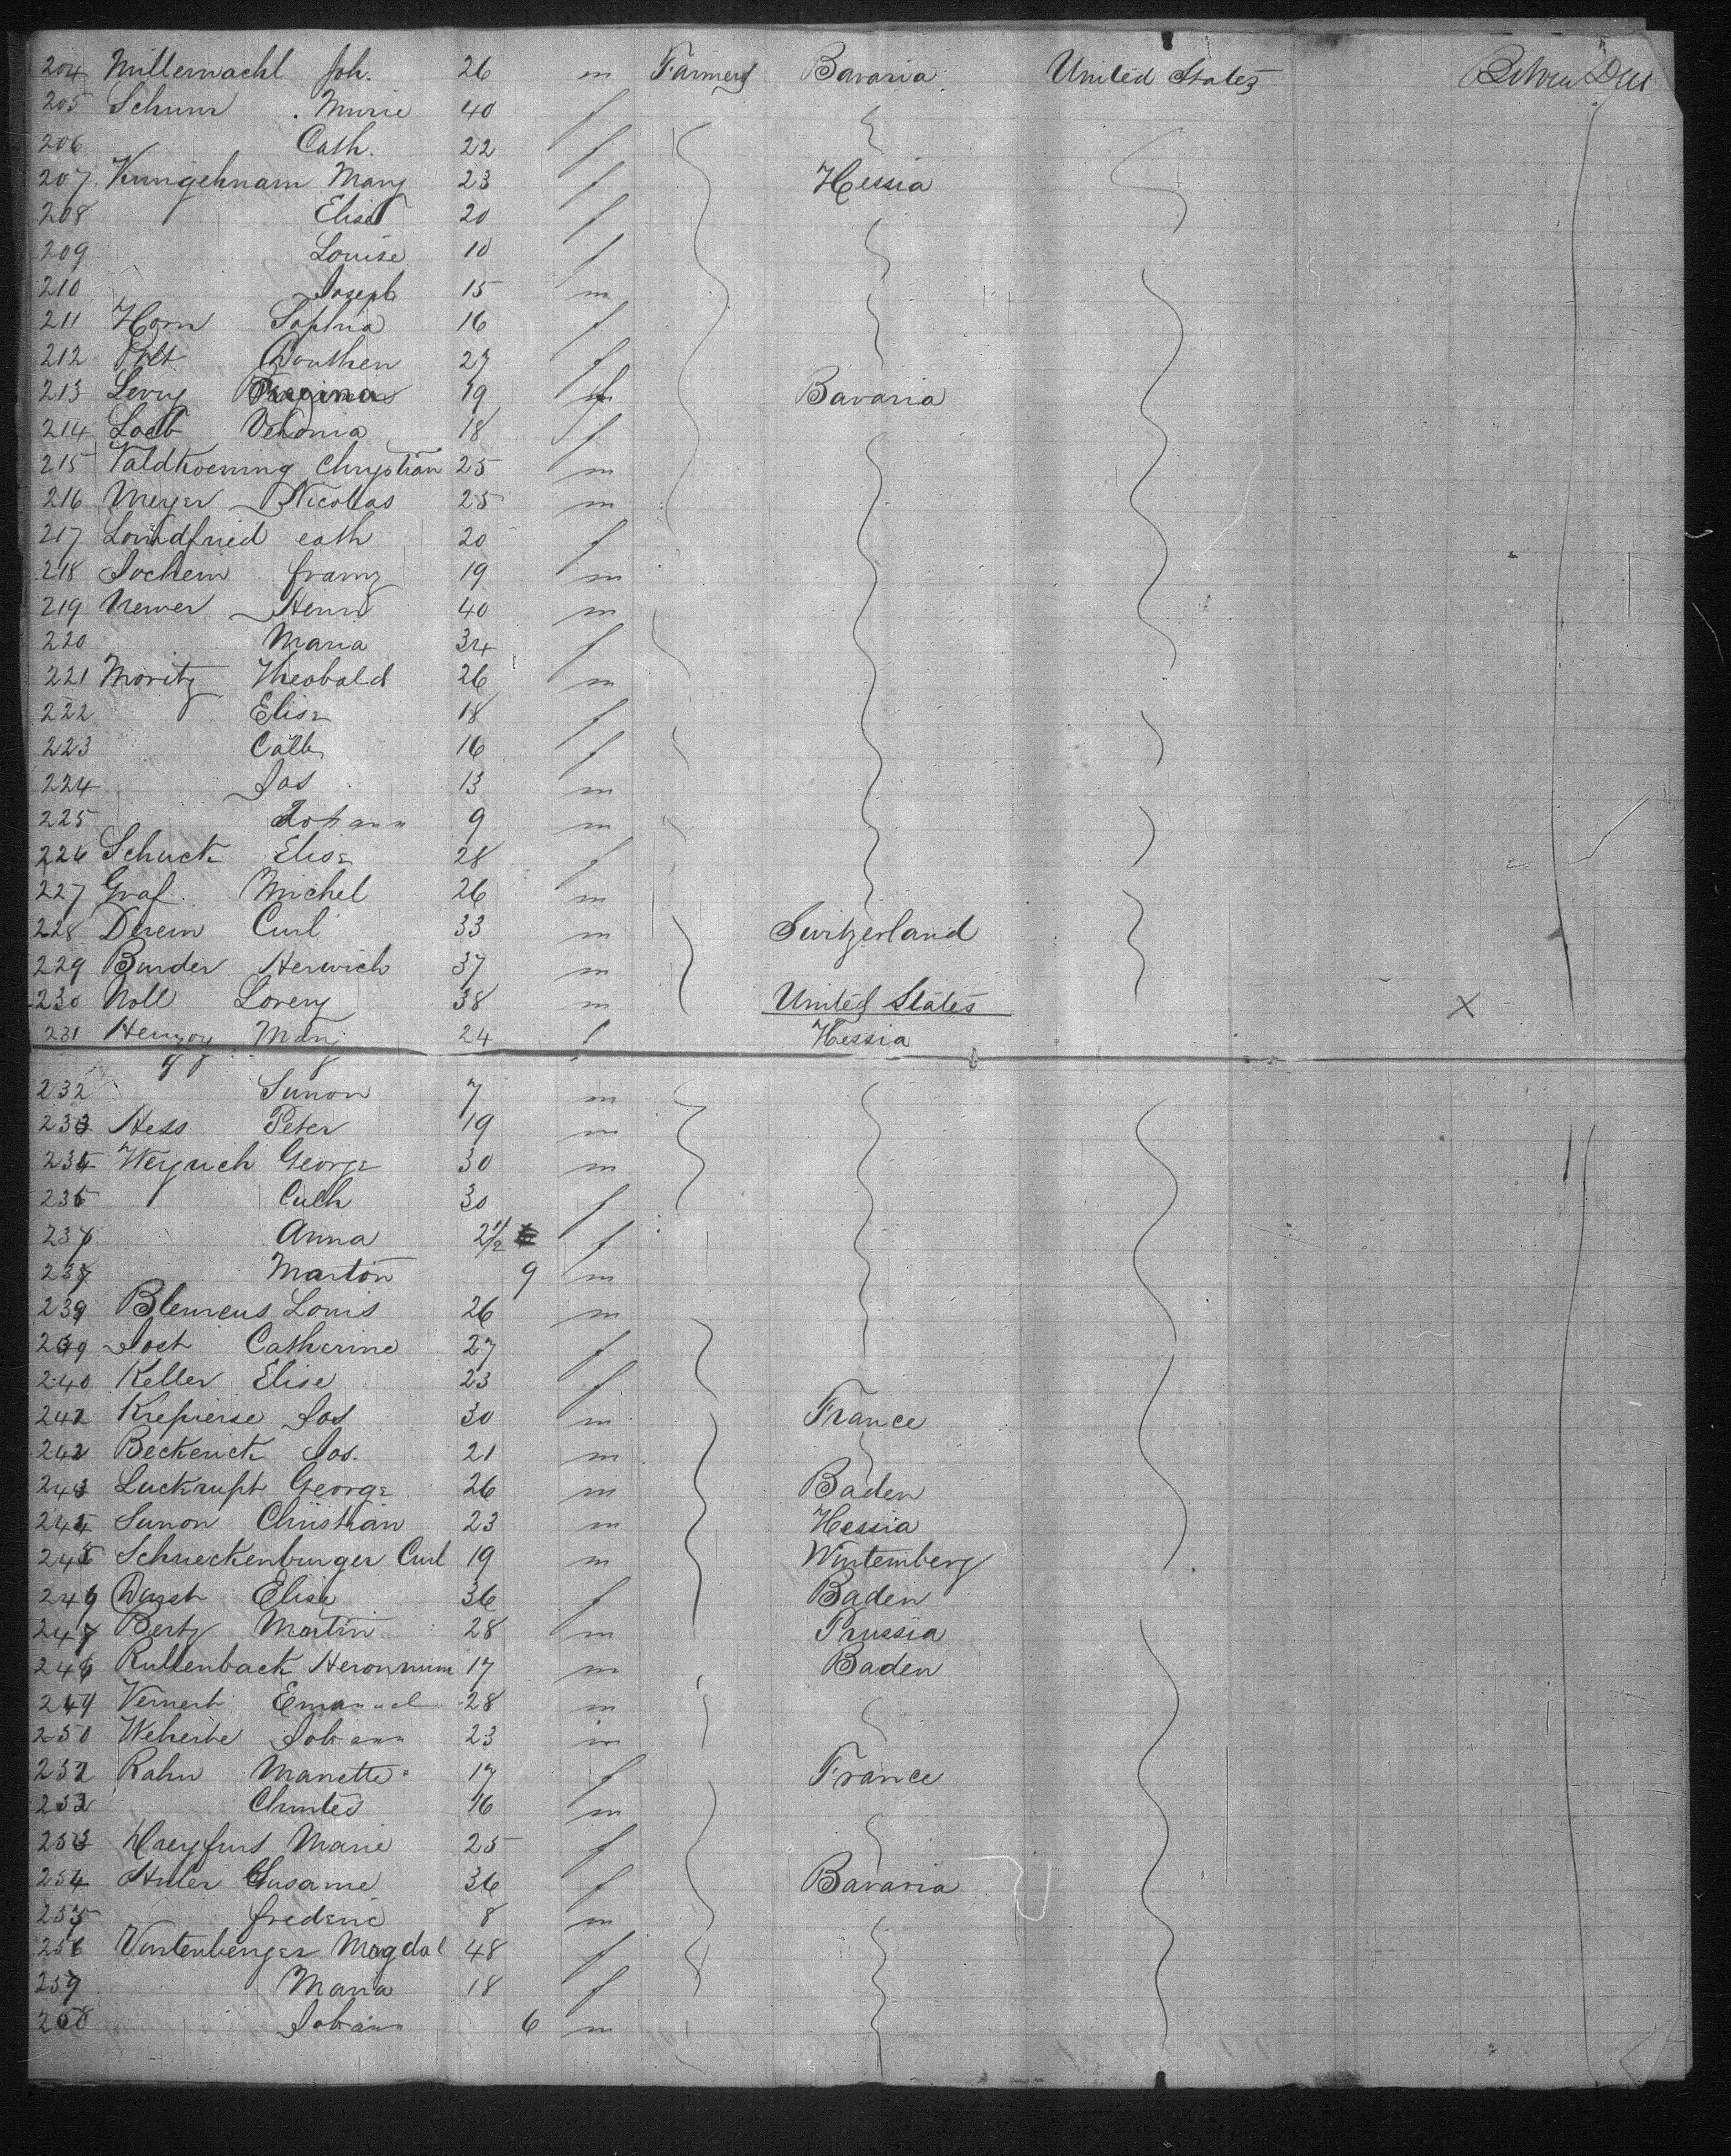 204 Millernacht Joh. 26 m Farmers Bavaria United States Between Decks
205 Schunr Marie 40 f
206 Cath. 22 f
207 Kungelmann Mary 23 f Hessia
208 Elise 20 f
209 Louise 10 f
210 Joseph 15 m
211 Horn Sophia 16 f
212 Ohlt 27 f
213 Levy Regina 19 f Bavaria
214 Loeb Veronia 18 f
215 Valdkoening Chrystian 25 m
216 Meyer Nicolas 25 m
217 Landfried cath 20 f
218 Jochem franz 19 m
219 Newer Henri 40 m
220 Maria 34 f
221 Moritz Theobald 26 m
222 Elise 18 f
223 Cath 16 f
224 Jos 13 m
225 Johann 9 m
226 Schuck Elise 28 f
227 Graf Michel 26 m
228 Derem Carl 33 m Switzerland
229 Burder Herwich 37 m
230 Noll Lorenz 38 m United States X
231 Mary 24 f Hessia
232 Simon 7 m
233 Hess Peter 19 m
234 Weyrich George 30 m
235 Cath 30 f
237 Anna 2 1/2 f
237 Martin 9 m
239 Louis 26 m
239 Jost Catherine 27 f
240 Keller Elise 23 f
241 Krepierse Jos 30 m France
242 Beckerick Jos. 21 m
243 Luckrupt George 26 m Baden
244 Simon Christian 23 m Hessia
245 Schneckenburger Carl 19 m Wurtemberg
246 Durst Elise 36 f Baden
247 Bertz Martin 28 m Prussia
248 Rullenback Heronnium 17 m Baden
249 Vernert Emanuel 28 m
250 Weherbe Johann 23 m
251 Kahn Manette 17 f France
252 Charles 16 m
253 Dreyfus Marie 25 f
254 Huler Susanne 36 f Bavaria
255 frederic 8 m
256 Vurtenberger Magdal 48 f
257 Maria 18 f
258 Johann 6 m